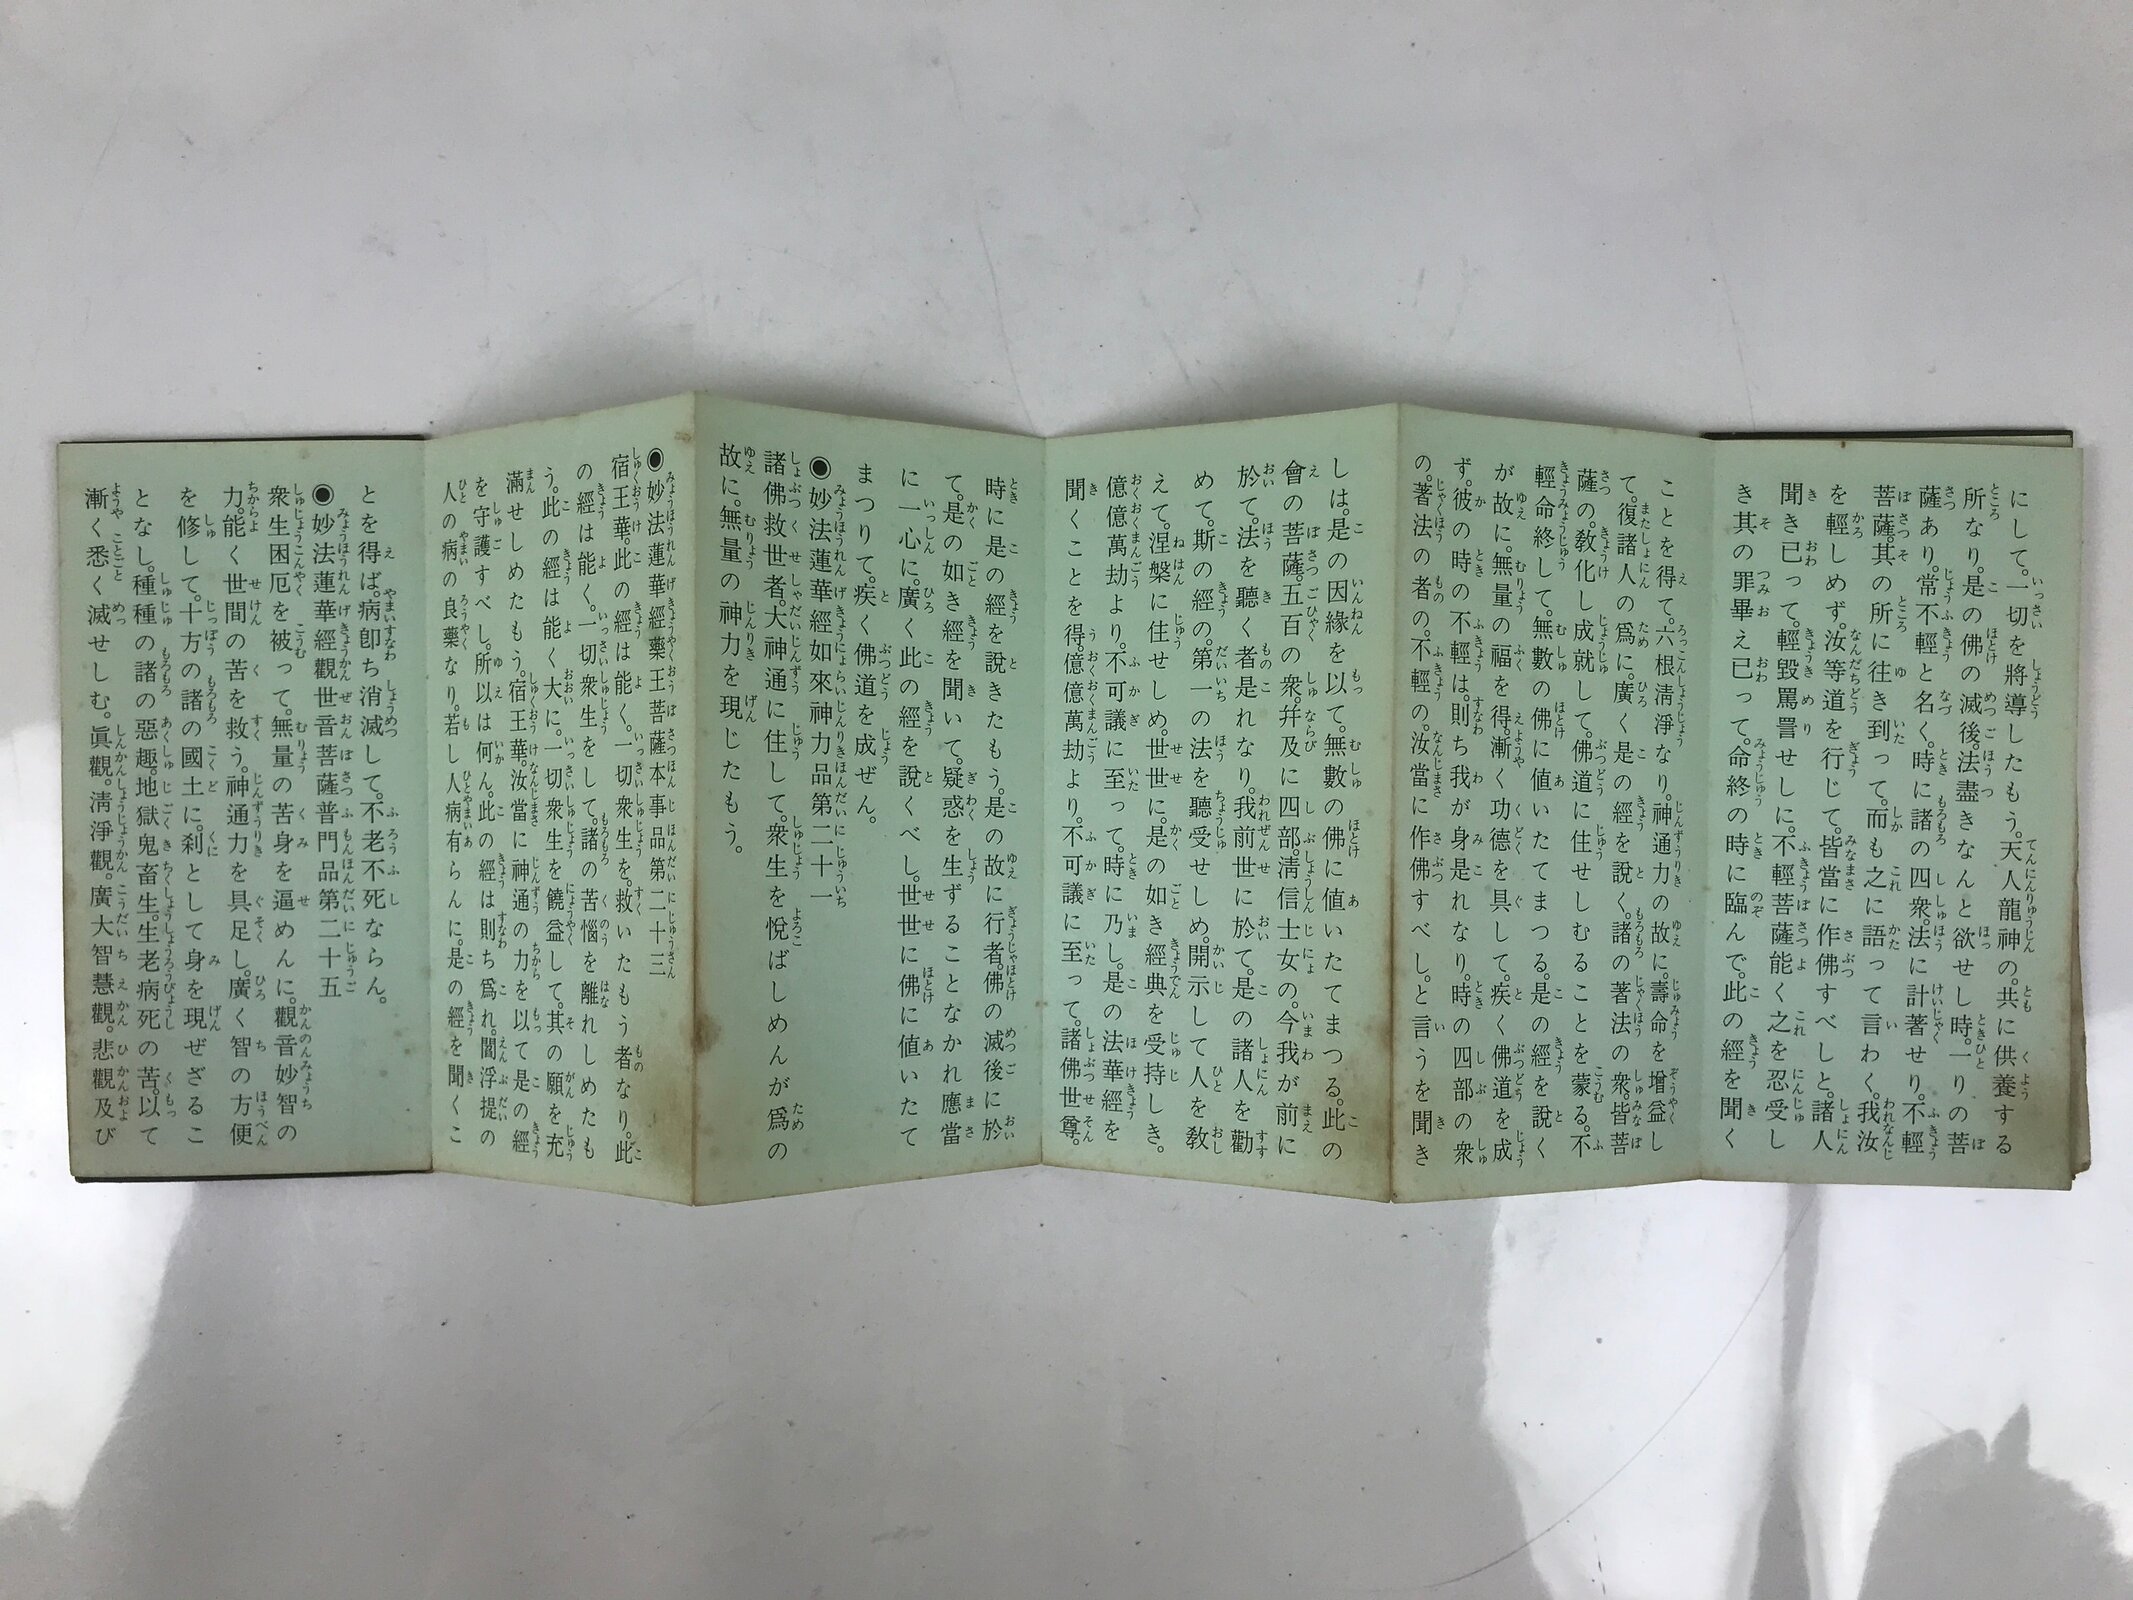 にして。一切を將導したもう。天人龍神の。共に供養する
所なり。是の佛の滅後。法盡きなんと欲せし時。一りの菩
薩あり。常不輕と名く。時に諸の四衆。法に計著せり。不輕
菩薩。其の所に往き到って。而も之に語って言わく。我汝
を輕しめず。汝等道を行じて。皆當に作佛すべしと。諸人
聞き已って。輕毀罵詈せしに。不輕菩薩能く之を忍受し
き其の罪畢え已って。命終の時に臨んで。此の經を聞く
ことを得て。六根淸淨なり。神通力の故に。壽命を增益し
て。復諸人の爲に。廣く是の經を說く。諸の著法の衆。皆菩
薩の。敎化し成就して。佛道に住せしむることを蒙る。不
輕命終して。無數の佛に値いたてまつる。是の經を說く
が故に。無量の福を得。漸く功德を具して。疾く佛道を成
ず。彼の時の不輕は。則ち我が身是れなり。時の四部の衆
の。著法の者の。不輕の。汝當に作佛すべし。と言うを聞き
しは。是の因緣を以て。無數の佛に値いたてまつる。此の
會の菩薩。五百の衆。幷及に四部。淸信士女の。今我が前に
於て。法を聽く者是れなり。我前世に於て。是の諸人を勸
めて。斯の經の。第一の法を聽受せしめ。開示して人を敎
えて。涅槃に住せしめ。世世に。是の如き經典を受持しき。
億億萬劫より。不可議に至って。時に乃し。是の法華經を
聞くことを得。億億萬劫より。不可議に至って。諸佛世尊。
時に是の經を說きたもう。是の故に行者。佛の滅後に於
て。是の如き經を聞いて。疑惑を生ずることなかれ應當
に一心に。廣く此の經を說くべし。世世に佛に値いたて
まつりて。疾く佛道を成ぜん。
◉妙法蓮華經如來神力品第二十一
諸佛救世者。大神通に住して。衆生を悅ばしめんが爲の
故に。無量の神力を現じたもう。
◉妙法蓮華經藥王菩薩本事品第二十三
宿王華。此の經は能く。一切衆生を。救いたもう者なり。此
の經は能く。一切衆生をして。諸の苦惱を離れしめたも
う。此の經は能く大に。一切衆生を饒益して。其の願を充
滿せしめたもう。宿王華。汝當に神通の力を以て是の經
を守護すべし。所以は何ん。此の經は則ち爲れ。閻浮提の
人の病の良藥なり。若し人病有らんに。是の經を聞くこ
とを得ば。病卽ち消滅して。不老不死ならん。
◉妙法蓮華經觀世音菩薩普門品第二十五
衆生困厄を被って。無量の苦身を逼めんに。觀音妙智の
力。能く世間の苦を救う。神通力を具足し。廣く智の方便
を修して。十方の諸の國土に。刹として身を現ぜざるこ
となし。種種の諸の惡趣。地獄鬼畜生。生老病死の苦。以て
漸く悉く滅せしむ。眞觀。淸淨觀。廣大智慧觀。悲觀及び